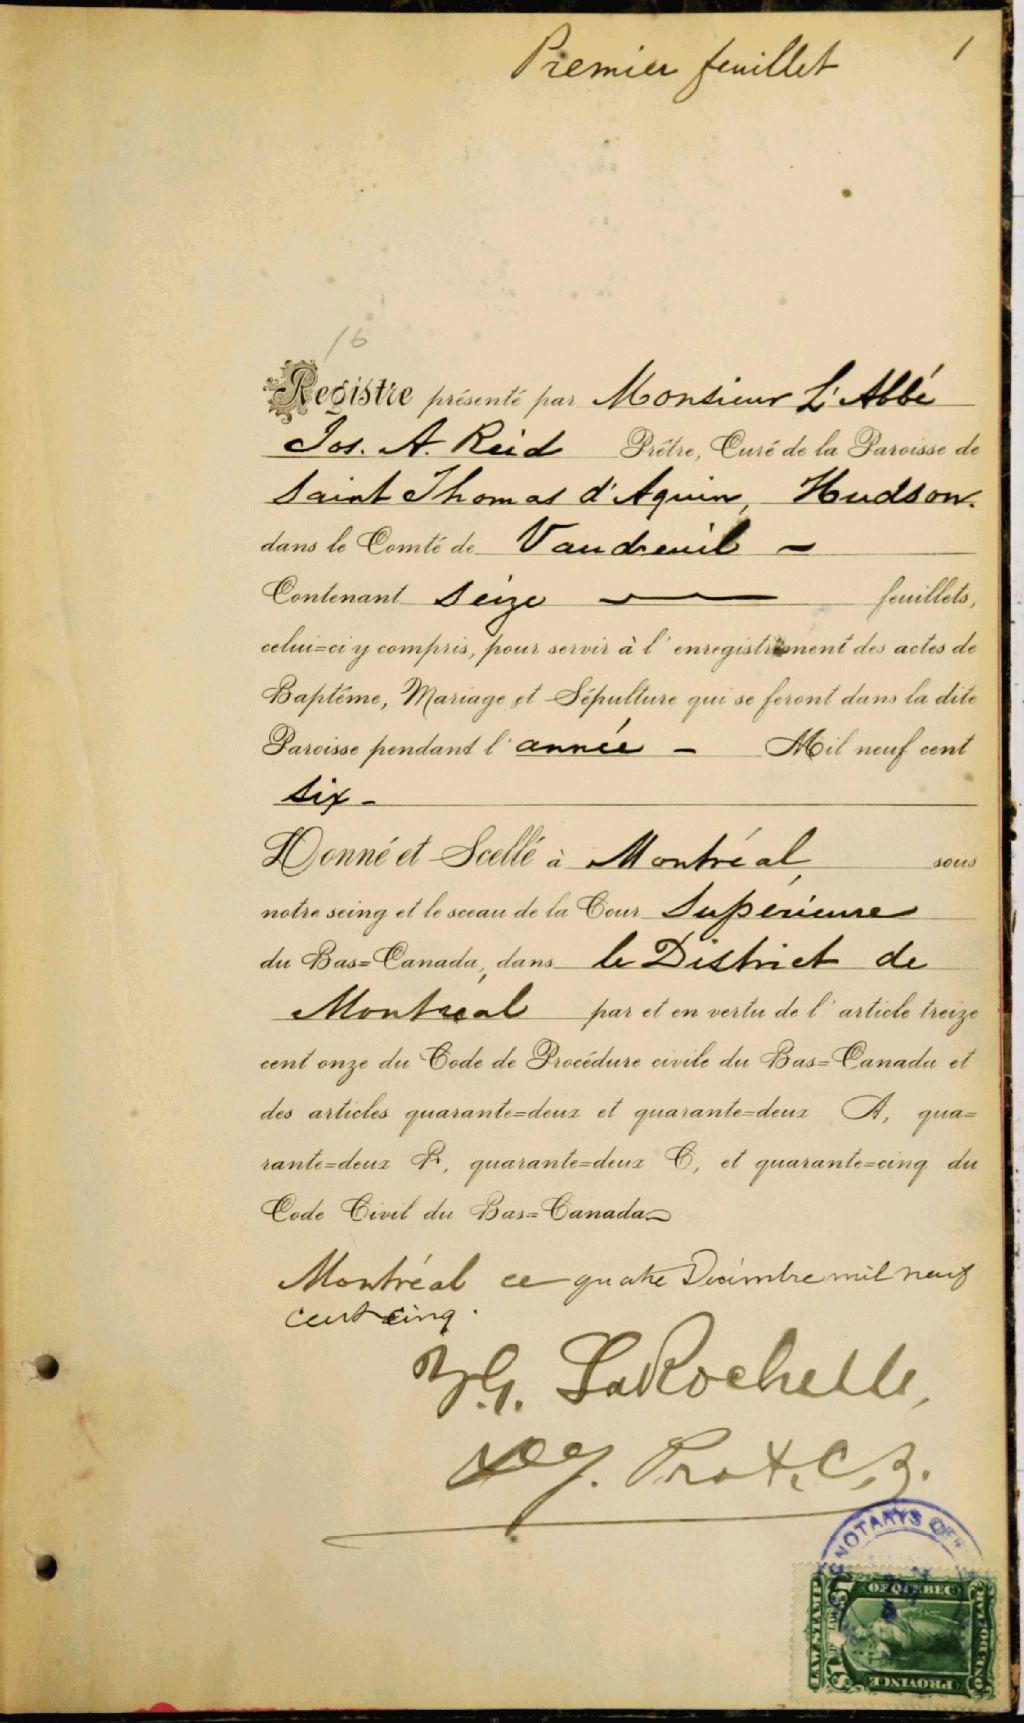 Premier feuillet
1
16
Registre présenté par Monsieur L'Abbé
Jos. A. Reid Prêtre, Curé de la Paroisse de
Saint Thomas d'Aquin, Hudson.
dans le Comté de Vaudreuil -
Contenant Seize feuillets,
celui=ci y compris, pour servir à l'enregistrement des actes de
Baptême, Mariage et Sépulture qui se feront dans la dite
Paroisse pendant l'année - Mil neuf cent
six -
Donné et Scellé à Montréal, sous
notre seing et le sceau de la Cour Supérieure
du Bas=Canada, dans le District de
Montréal par et en vertu de l'article treize
cent onze du Code de Procédure civile du Bas=Canada et
des articles quarante=deux et quarante=deux A, qua=
rante=deux B, quarante=deux C, et quarante=cinq du
Code Civil du Bas=Canada
Montréal ce quatre Décembre mil neuf
cent cinq.
LaRochelle,
Dep. Prot. C.S.
NOTARYS OF
LAW STAMP
$1
OF QUEBEC
ONE DOLLAR
PROVINCE
$1